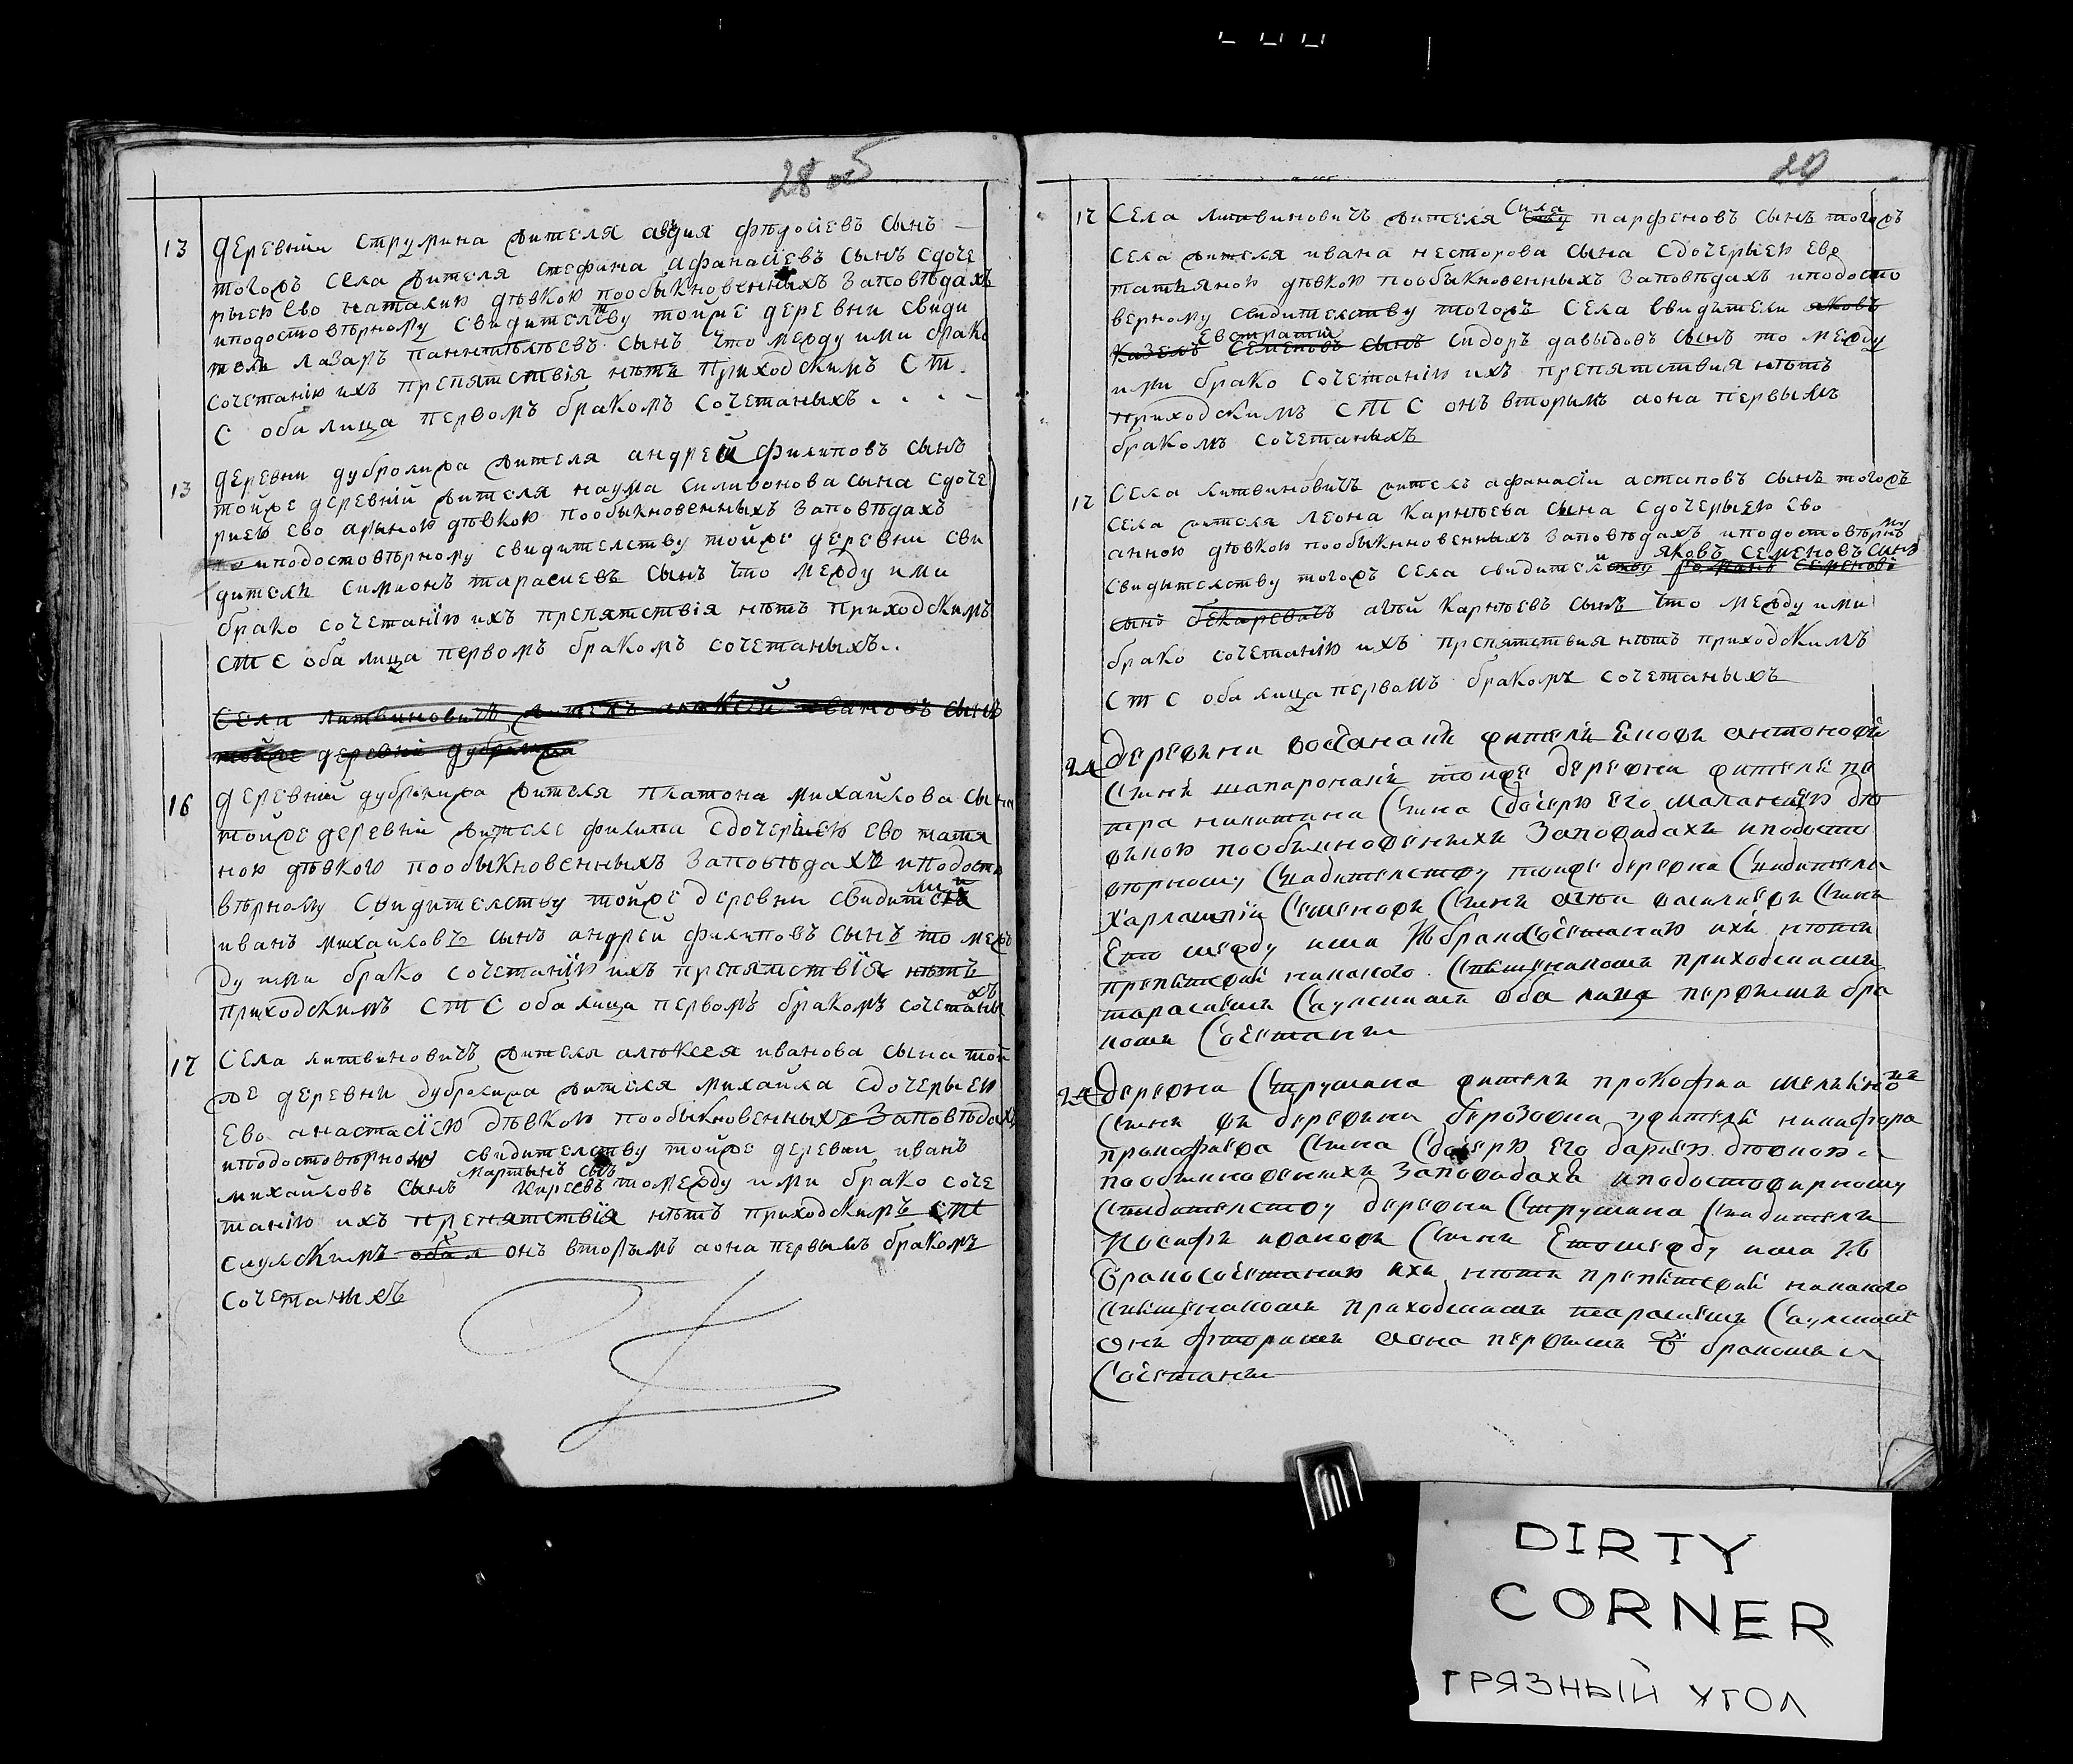 28 об
13 деревніи струмина жителя авдия фѣдосіевъ сынъ
тогожъ села жителя стефана афанасіевъ сынъ сдоче
рыею ево наталию дѣвкою пообыкновенныхъ заповѣдахъ
иподостовѣрному свидителству тойже деревни свиди
тели лазаръ сынъ что между ими брако
сочетанію ихъ препятствія нѣтъ приходскимъ С т.
С оба лица первомъ бракомъ сочетаныхъ . . . -
13 деревни дубролижа жителя андрей филиповъ сынъ
тойже деревніи жителя наума силивонова сына сдоче
риею ево ариною дѣвкою пообыкновенныхъ заповѣдахъ
иподостовѣрному свидителству тойже деревни сви
дители симионъ тарасиевъ сынъ что между ими
брако сочетанію ихъ препятствія нѣтъ приходскимъ
СТ С оба лица первомъ бракомъ сочетаныхъ..
Села литвиновичъ жителъ иванъвъ сынъ
тойже деревні дубролижа
16 деревніи дубролижа жителя платона михайлова сына
тойже деревні жителе филипа сдочерыею ево татя
ною дѣвкою пообыкновенныхъ заповѣдахъ иподосто
вѣрному свидителству тойже деревни свидители
иванъ михайловъ сынъ андрей филиповъ сынъ то меж
ду ими брако сочетаніи ихъ препятствія нѣтъ
приходскимъ СТ С оба лица первомъ бракомъ сочетаныхъ
17 Села литвиновичъ жителя алѣксея иванова сына той
же деревни дубролижа жителя михайла сдочерыею
Ево анастасіею дѣвкою пообыкновенныхъ заповѣдахъ
иподостовѣрному свидителству тойже деревни иванъ
мартынъ сынъ
михайловъ сынъ киреевъ томежду ими брако соче
танію ихъ препятствія нѣтъ приходскимъ СТ
слулскимъ оба л онъ вторымъ аона первымъ бракомъ
сочетаныхъ
29
17 Села литвиновичъ жителя Сила парфеновъ сынъ тогожъ
села жителя ивана несторова сына сдочерыею ево
татияною дѣвкою пообыкновенныхъ заповѣдахъ иподосто
верному свидителству тогожъ села свидители яковъ
Евстратій
Казелъ семеновъ сынъ сидоръ давыдовъ сынъ то между
ими брако сочетанію ихъ препятствия нѣтъ
приходскимъ СТ С онъ вторымъ аона первымъ
бракомъ сочетаныхъ
17 Села литвиновичъ жителъ афанасіи астаповъ сынъ тогожъ
села жителя леона карнѣева сына сдочерыею ево
анною дѣвкою пообыкновенныхъ заповѣдахъ иподостовѣрному
яковъ семеновъ сынъ
свидителству тогожъ села свидители романъ семеновъ
сынъ бекаревичъ агѣй карнѣевъ сынъ что между ими
брако сочетанію ихъ препятствия нѣтъ приходскимъ
С т С оба лица первомъ бракомъ сочетаныхъ
24 деревъни восканаки жителъ антоновъ
Сынъ тоиже деревни жителе пе
тра никитина Сына Сдочерю Его маланиею дѣ
вкою пообикновенихъ Заповидахъ иподосто
вѣрному Свидителству тоиже деревна Свидители
Харлампіи Семеновъ Синъ василиевъ Синъ
Что между ими Кбракосочетанию ихъ нѣтъ
препятсвий никакого. Священикомъ приходскимъ
тарасиемъ Саулскимъ оба лица первимъ бра
комъ Сочетани
24 деревна Струмина жителъ прокофиа
Синъ въ деревъни березовка жителя никифора
прокофиева Сина Сдочерю Его дариею дѣвкою
пообикновенихъ Заповидахъ иподостовирному
Свидителству деревни Струмина Свидители
Иосифъ ивановъ Синъ Что между ими Къ
бракосочетанию ихъ нѣтъ препятсвий никакого
Священикомъ приходскимъ тарасиемъ Саулскимъ
Онъ фторимъ аона первимъ бракомъ
Сочетани
DIRTY
CORNER
ГРЯЗНЫЙ УГОЛ